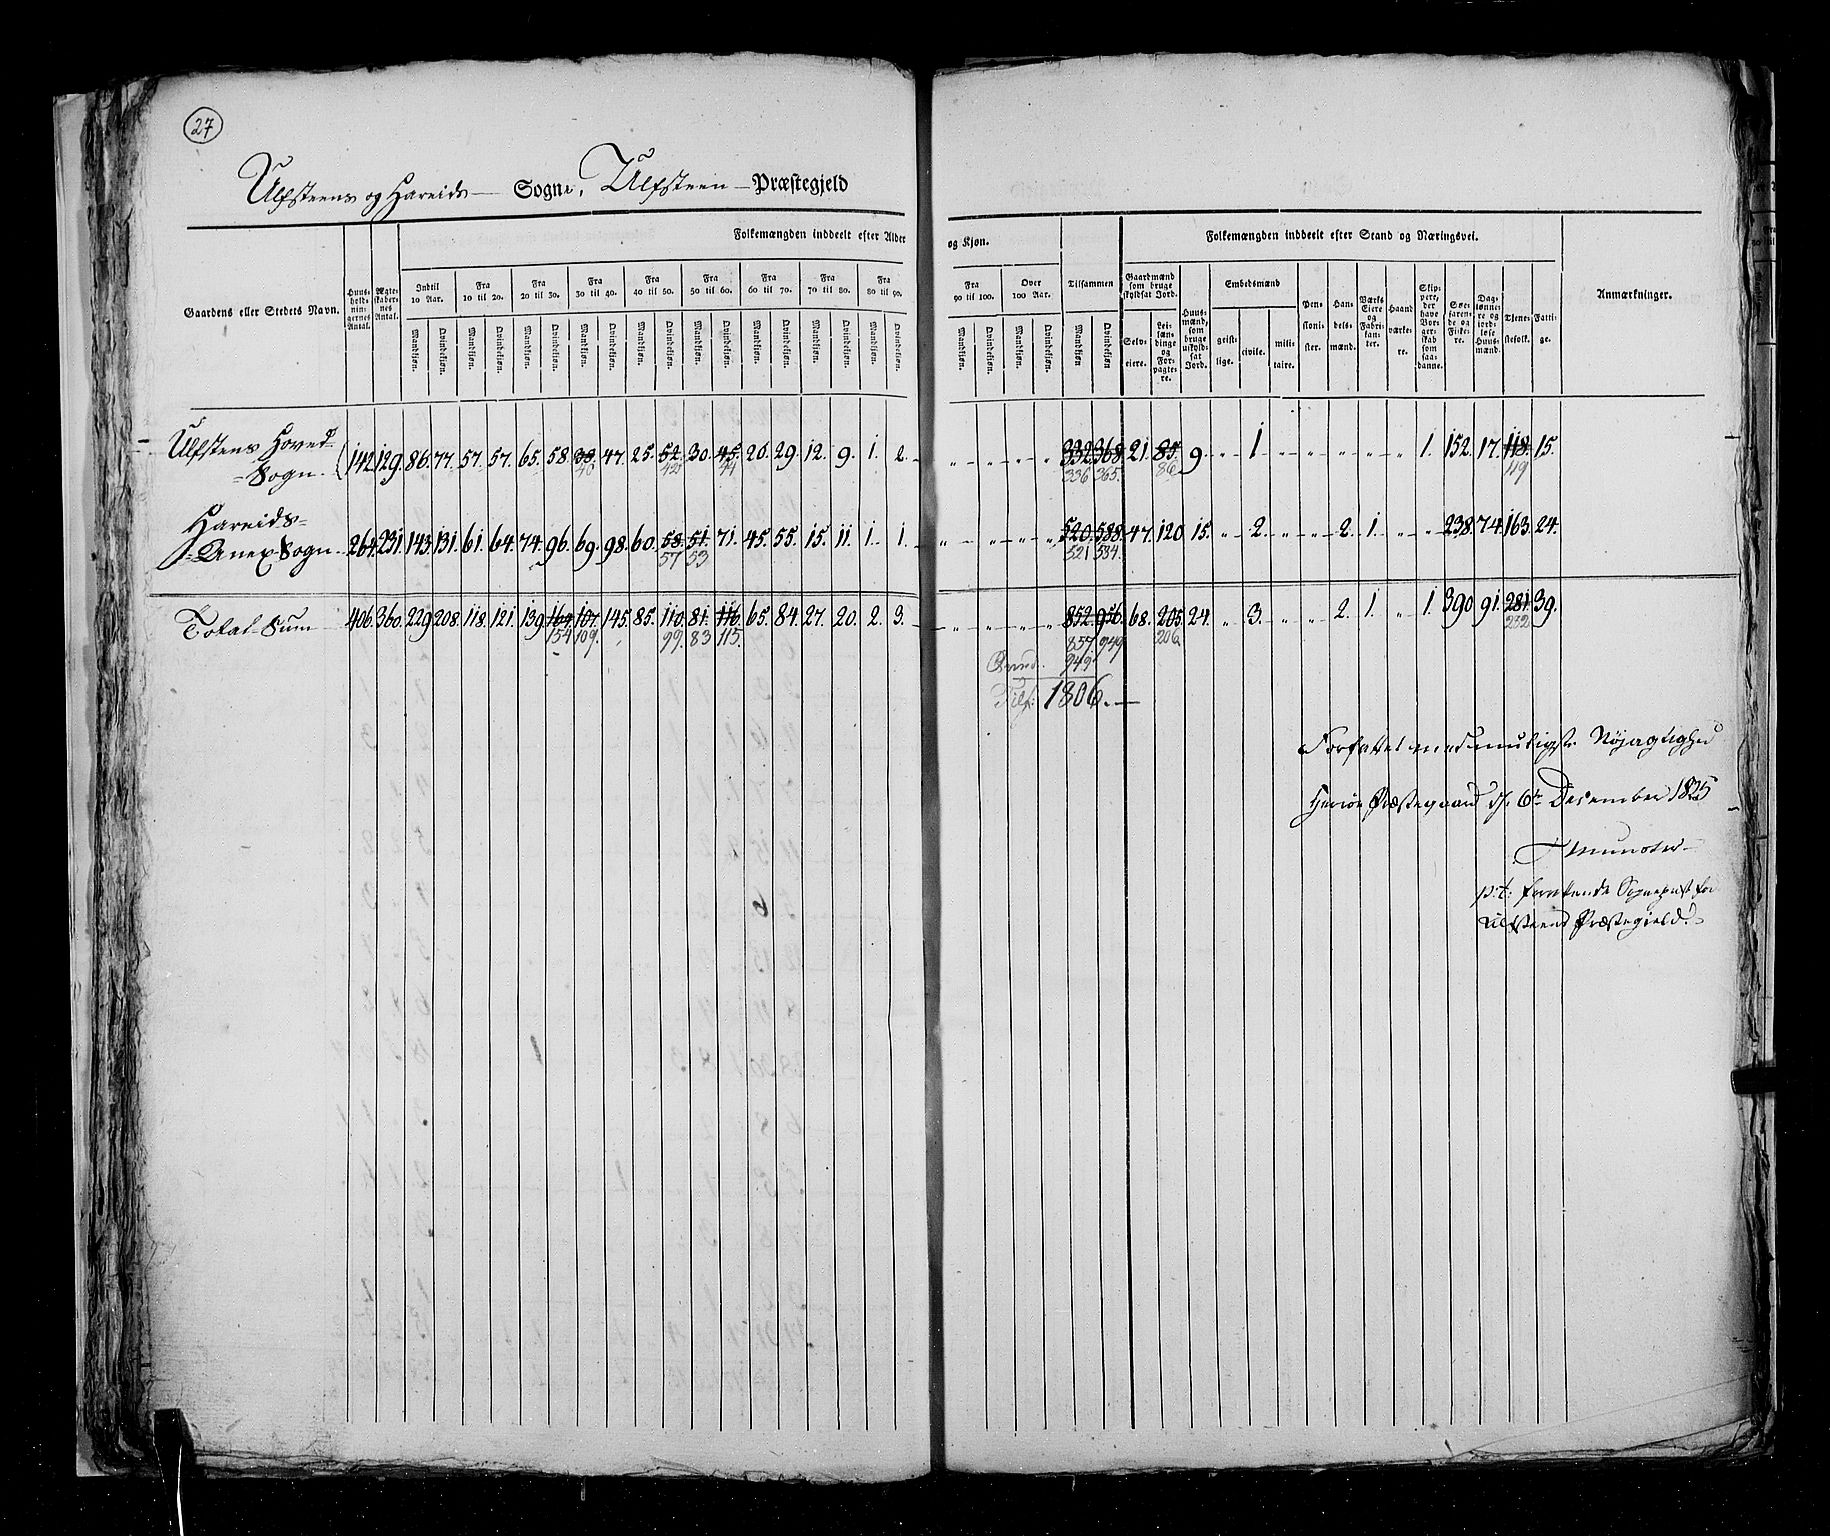 27
Ulfsteens og Hareids Sogne, Ulfsteen Præstegjeld
Folkemængden inddeelt efter Alder og Kjøn. Folkemængden inddeelt efter Stand og Næringsvei.
Gaardens eller Stedets Navn. Huusholdningernes Antal. Ægteskabernes Antal. Indtil 10 Aar. Fra 10 til 20. Fra 20 til 30. Fra 30 til 40. Fra 40 til 50. Fra 50 til 60. Fra 60 til 70. Fra 70 til 80. Fra 80 til 90. Fra 90 til 100. Over 100 Aar. Tilsammen Gaardmænd som bruge skyldsat Jord. Huusmænd, som bruge uskyldsat Jord. Embedsmænd Pensionister. Handelsmænd. Værks Eiere og Fabrikanter. Haandværkere. Skippere, der have Borgerskab som saadanne. Søefarende og Fiskere. Daglønnere og jordløse Huusmænd. Tjenestefolk. Fattige. Anmærkninger.
Mandkjøn. Qvindekjøn. Mandkjøn. Qvindekjøn. Mandkjøn. Qvindekjøn. Mandkjøn. Qvindekjøn. Mandkjøn. Qvindekjøn. Mandkjøn. Qvindekjøn. Mandkjøn. Qvindekjøn. Mandkjøn. Qvindekjøn. Mandkjøn. Qvindekjøn. Mandkjøn. Qvindekjøn. Mandkjøn. Qvindekjøn. Mandkjøn Qvindekjøn Selveiere. Leilændinge og Forpagtere. geistlige. civile. militaire.
Ulfstens Hoved=
=Sogn 142 129. 86. 77. 57. 57. 65. 58. 47. 25. 52. 30. 45. 20. 29. 12. 9. 1. 2. 332 368. 21. 85. 9. 1 1. 152. 17. 118. 15.
40 42 44 336 365. 86 119
Hareids=
=Anex Sogn 264. 231. 143. 131. 61. 64. 74. 96. 69. 98. 60. 58. 51. 71. 45. 55. 15. 11. 1. 1. 520. 588. 47. 120 15. 2. 2. 1. 238. 74. 163. 24.
57 53 521 584.
Total Sum 406. 360. 229. 208. 118. 121. 139. 164. 107. 145. 85. 110. 81. 116. 65. 84. 27. 20. 2. 3. 852. 956. 68. 205. 24. 3. 2. 1. 1. 390. 91. 281. 39.
154 109. 99. 83 115. 857. 949 206. 232
949
Tils: 1806.
Forfattet med muligste Nøjagtighed
Herøe Præstegaard d. 6te December 1825
Munster
p:t:
Ulfsteens Præstegield.